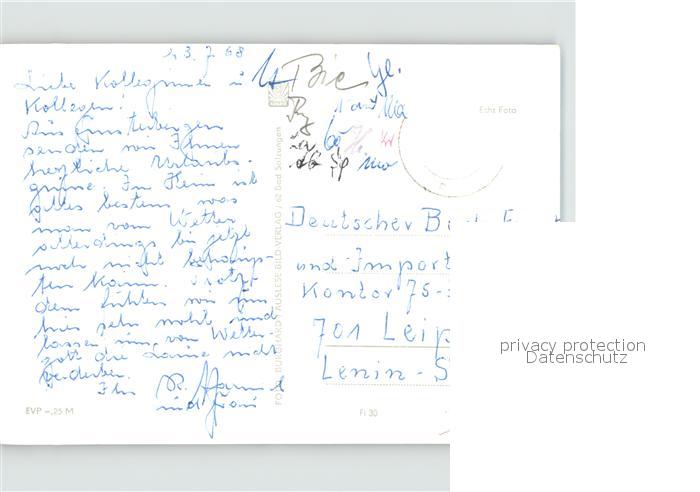 23.7.68
Liebe Kolleginnen u.
Kollegen!
Aus
senden wir Ihnen
herzliche Urlaubs-
grüße. Im Heim ist
alles bestens, was
man vom Wetter
allerdings bis jetzt
noch nicht behaup-
ten kann. Trotz-
dem fühlen wir uns
hier sehr wohl und
lassen uns vom Wetter-
gott die Laune nicht
verderben.
Ihr R.
und Frau
EVP -,25 M
Echt Foto
62 Bad Salzungen
AUSLESE-BILD-VERLAG
Deutscher
und Import
Kontor 75-
701 Leip
Lenin-S
Fi 30
privacy protection
Datenschutz